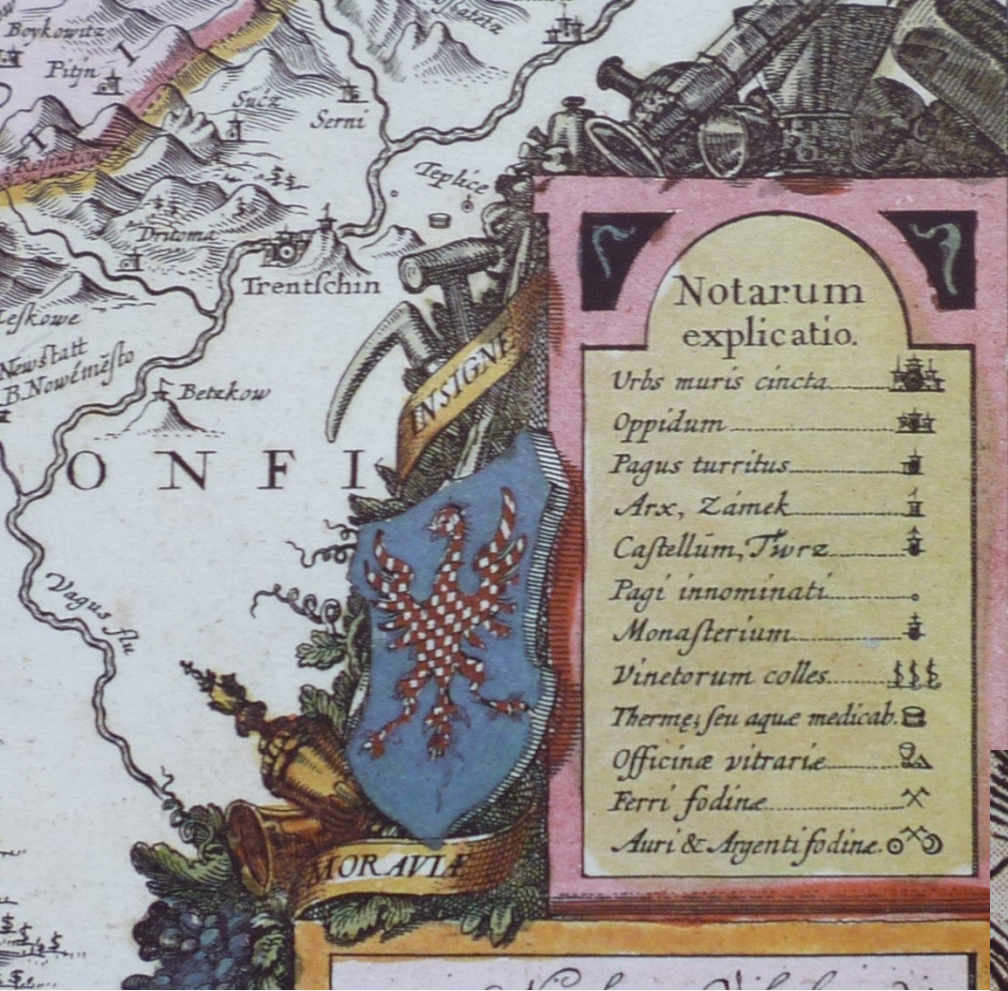 Boykowitz
Pitjn
T I
Sucz
Serni
Rosinkow
Teplice
Dritoma
Trentſchin
Leſkowe
Newſtatt
B. Nowéměſto
Betzkow
O N F I
Vagus flu
INSIGNE
MORAVIÆ
Notarum
explicatio.
Urbs muris cincta
Oppidum
Pagus turritus
Arx, Zámek
Caſtellum, Twrz
Pagi innominati
Monaſterium
Vinetorum colles
Thermę, ſeu aquæ medicab.
Officinæ vitrariæ
Ferri fodinæ
Auri & Argenti fodinæ